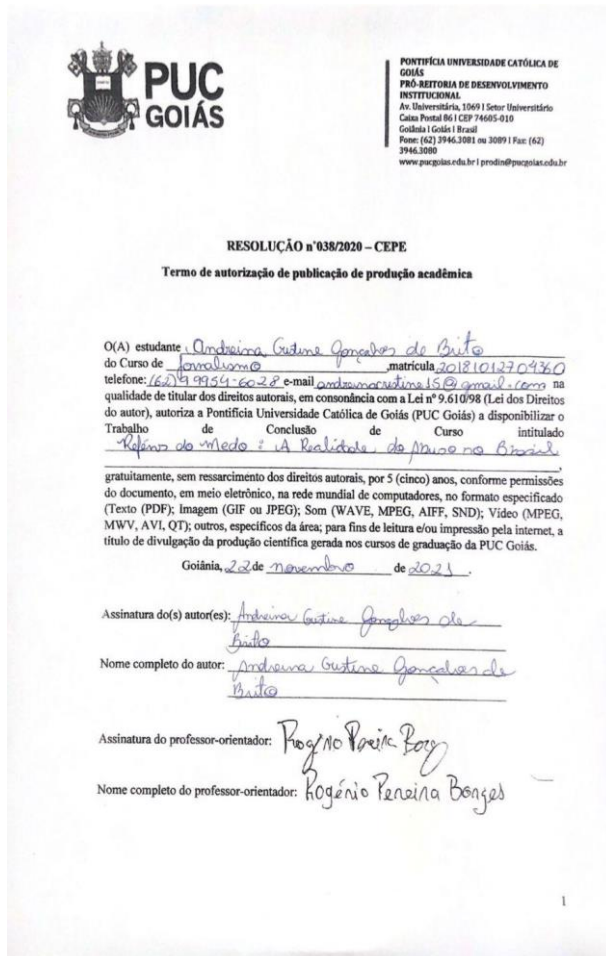 PUC
GOIÁS
PONTIFÍCIA UNIVERSIDADE CATÓLICA DE
GOIÁS
PRÓ-REITORIA DE DESENVOLVIMENTO
INSTITUCIONAL
Av. Universitária, 1069 | Setor Universitário
Caixa Postal 86 | CEP 74605-010
Goiânia | Goiás | Brasil
Fone: (62) 3946.3081 ou 3089 | Fax: (62)
3946.3080
www.pucgoias.edu.br | prodin@pucgoias.edu.br
RESOLUÇÃO n°038/2020 – CEPE
Termo de autorização de publicação de produção acadêmica
O(A) estudante Andreina Cristine Gonçalves de Brito
do Curso de Jornalismo ,matrícula 20181012704360
telefone: (62) 9 9954-6028 e-mail andreinacristine15@gmail.com na
qualidade de titular dos direitos autorais, em consonância com a Lei nº 9.610/98 (Lei dos Direitos
do autor), autoriza a Pontifícia Universidade Católica de Goiás (PUC Goiás) a disponibilizar o
Trabalho de Conclusão de Curso intitulado
Reféns do Medo: A Realidade do Abuso no Brasil
,
gratuitamente, sem ressarcimento dos direitos autorais, por 5 (cinco) anos, conforme permissões
do documento, em meio eletrônico, na rede mundial de computadores, no formato especificado
(Texto (PDF); Imagem (GIF ou JPEG); Som (WAVE, MPEG, AIFF, SND); Vídeo (MPEG,
MWV, AVI, QT); outros, específicos da área; para fins de leitura e/ou impressão pela internet, a
título de divulgação da produção científica gerada nos cursos de graduação da PUC Goiás.
Goiânia, 22 de novembro de 2021.
Assinatura do(s) autor(es): Andreina Cristine Gonçalves de
Brito
Nome completo do autor: Andreina Cristine Gonçalves de
Brito
Assinatura do professor-orientador: Rogério Pereira Borges
Nome completo do professor-orientador: Rogério Pereira Borges
1